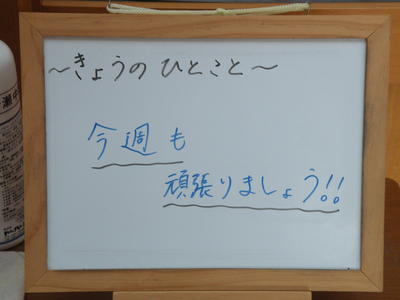 ～きょうのひとこと～
今週も
頑張りましょう!!